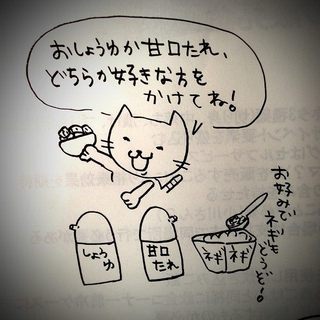 おしょうゆか甘口たれ、
どちらか好きな方を
かけてね!
しょう
ゆ
甘口
たれ
ネギネギ
お好みで
ネギも
どうぞ!